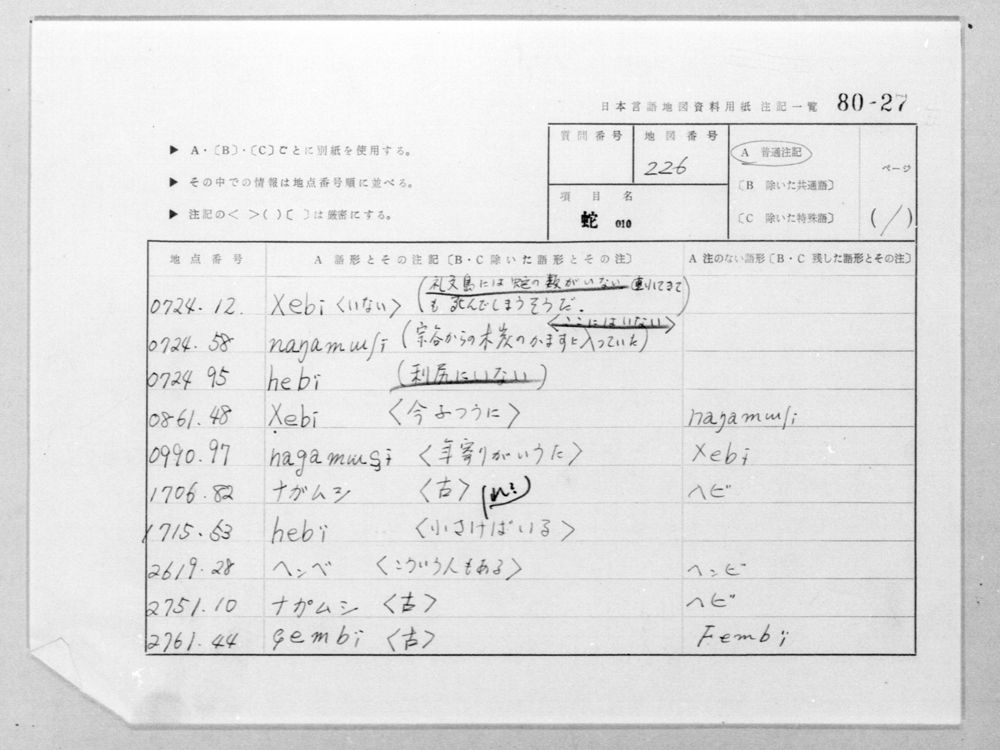 日本言語地図資料用紙 注記一覧 80-27
▶ A・〔B〕・〔C〕ごとに別紙を使用する。
▶ その中での情報は地点番号順に並べる。
▶ 注記の< >( )〔 〕は厳密にする。
質問番号 地図番号 226
項目名 蛇 010
A 普通注記
〔B 除いた共通語〕
〔C 除いた特殊語〕
ページ
(/)
地点番号 A 語形とその注記〔B・C 除いた語形とその注〕 A 注のない語形〔B・C 残した語形とその注〕
(礼文島には蛇の類がいない
0724.12. xebï <いない> も死んでしまうそうだ.
<ここにはいない>
0724.58 naŋamɯʃi (宗谷からの木炭のかますに入っていた)
0724 95 hebï (利尻にいない)
0861.48 xebï <今ふつうに> naŋamɯʃi
0990.97 nagamɯsï <年寄りがいうた> xebï
1706.82 ナガムシ <古> ヘビ
1715.53 hebï <小さければいる>
2619.28 ヘンベ <こういう人もある> ヘンビ
2751.10 ナガムシ <古> ヘビ
2761.44 çembï <古> Fembï